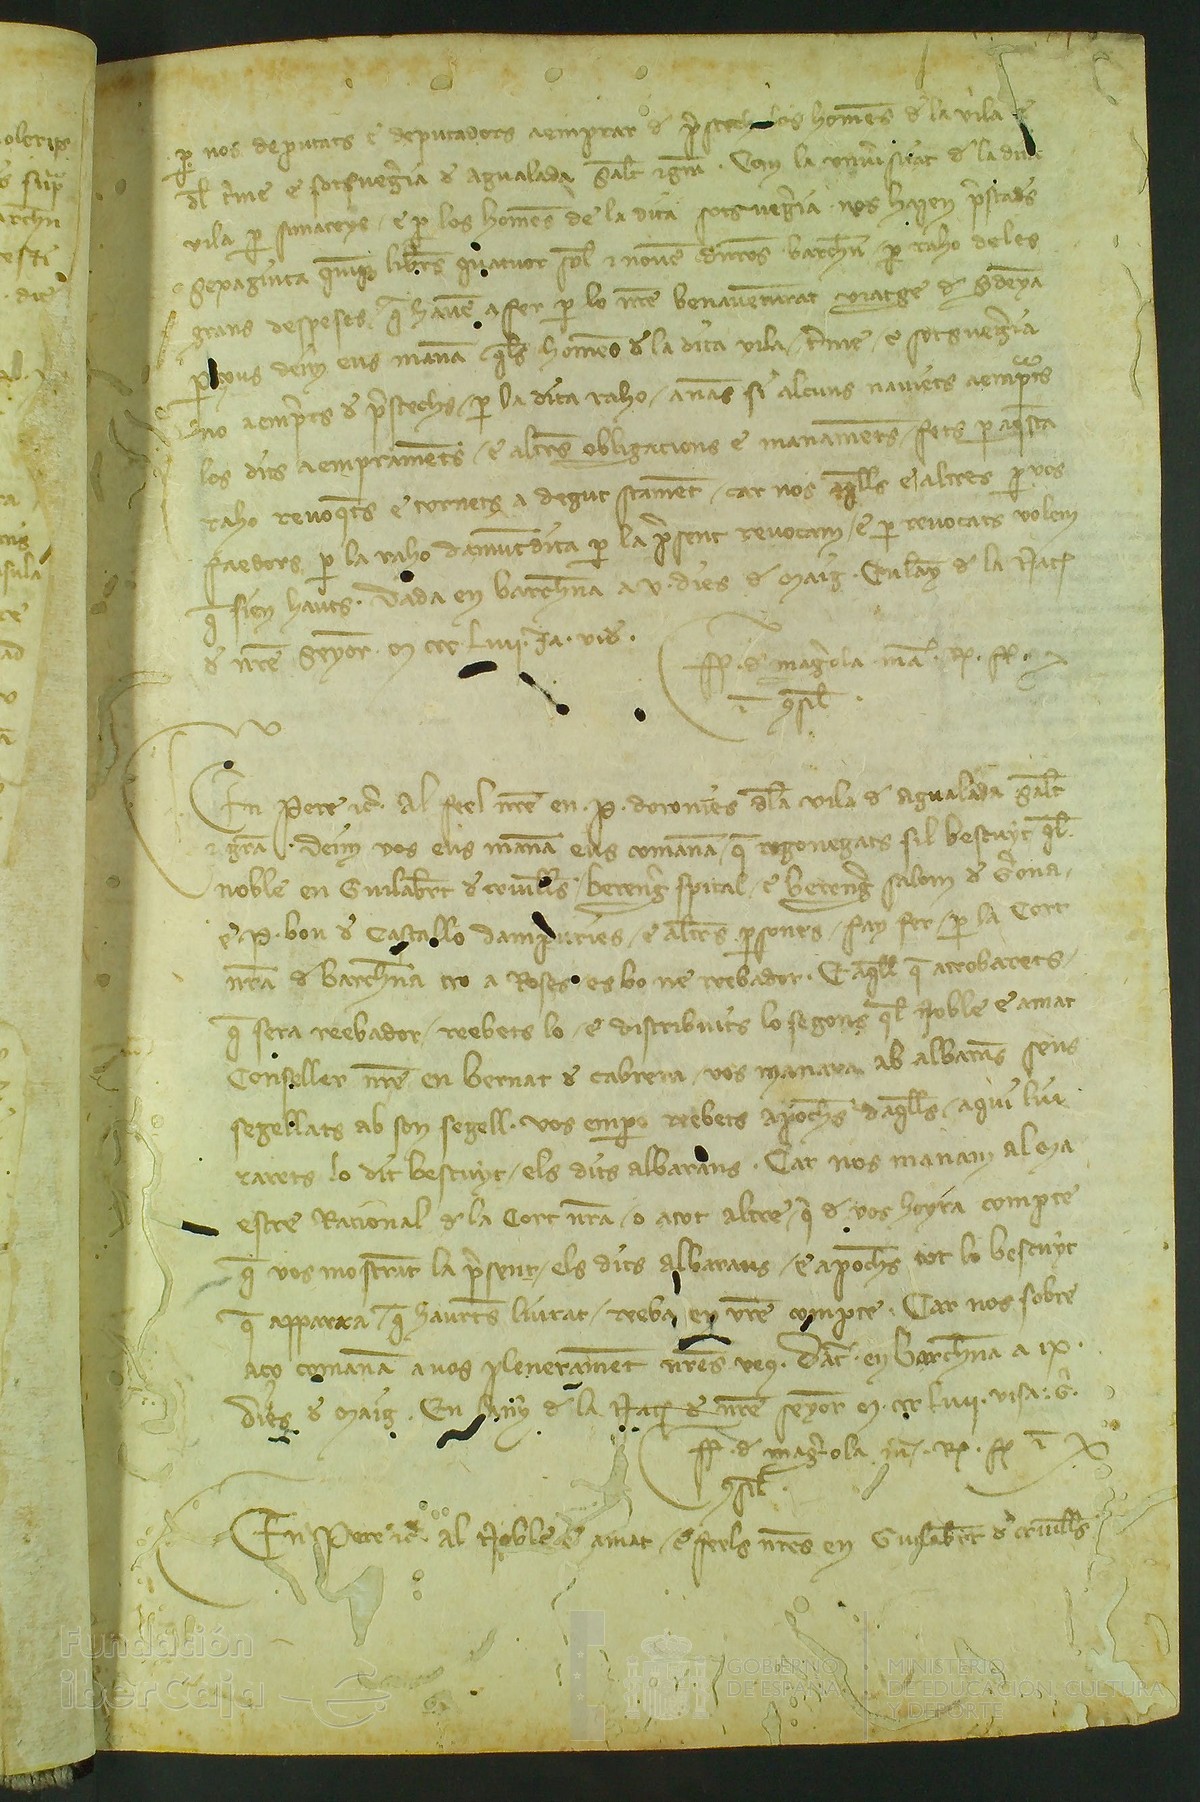 per nos deputats e deputadors aemprar de prestech los homens de la vila e
del terme e sotsvegeria de Agualada Salut e gracia. Com la universitat de la dita
vila per si mateys / e per los homens de la dita sotsvegeria nos hajen prestades
Sexaginta quinque libres quatuor sol e nove diners barchn per raho de les
grans despeses que havem a fer per lo nostre benaventurat viatge de Serdenya
per ço us deim eus manam quels homens de la dita vila / terme / e sotsvegeria
no aemprets de prestechs / per la dita raho / ans si alcuns naviets aemprats
los dits aempraments / e altres obligacions e manaments / fets per aquesta
raho revoquets e tornets a degut stament / car nos aquells e altres per vos
faedors per la raho damuntdita per la present revocam / e per revocats volem
que sien hauts. Dada en barchna a v. dies de Maig. En lany de la Nat
de nostre Senyor M ccc Lvii. Ja. vis.
ff. de magerola man. R. f.
i consil.
En Pere etc. Al feel nostre en P. de la vila de Agualada Salut
e gracia. Deim vos eus manam eus comanam / que regonegats sil bescuyt quel
noble en Guilabert de cruilles / berenguer spital / e berenguer salom de Gerona /
e P. bou de Castallo dampuries / e altres persones / fan fer / per la Cort
nostra de barchna tro a Roses es bo ne reebador. E aquell que atrobarets /
que sera reebador / reebets lo / e distribuits lo segons quel Noble e amat
Conseller nostre en bernat de cabrera / vos manara ab albarans seus
segellats ab son segell. vos empero reebets apoches daquells / aqui liu
rarets lo dit bescuyt / els dits albarans. Car nos manam al Ma
estre Racional de la Cort nostra / o a tot altre / qui de vos hoyra compte
que vos mostrant la present / els dits albarans / e apoches tot lo bescuyt
que apparra que haurets liurat / reeba en vostre compte. Car nos sobre
aço comanam a vos plenerament nostres veus. Dat. en barchna a ix.
dies de Maig. En lany de la Nat de nostre senyor M. ccc Lvii. visa. G.
ff. de magerola man. R. f i
consil.
En Pere etc. Al Noble e amat / e feels nostres en Guilabert de cruilles
Fundación
iberCaja
GOBIERNO
DE ESPAÑA
MINISTERIO
DE EDUCACIÓN, CULTURA
Y DEPORTE